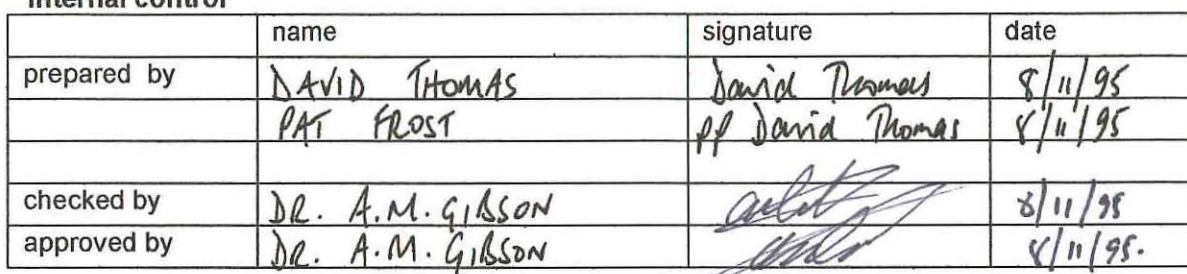 internal control
name signature date
prepared by DAVID THOMAS David Thomas 8/11/95
PAT FROST pp David Thomas 8/11/95
checked by DR. A.M. GIBSON 8/11/95
approved by DR. A.M. GIBSON 8/11/95.